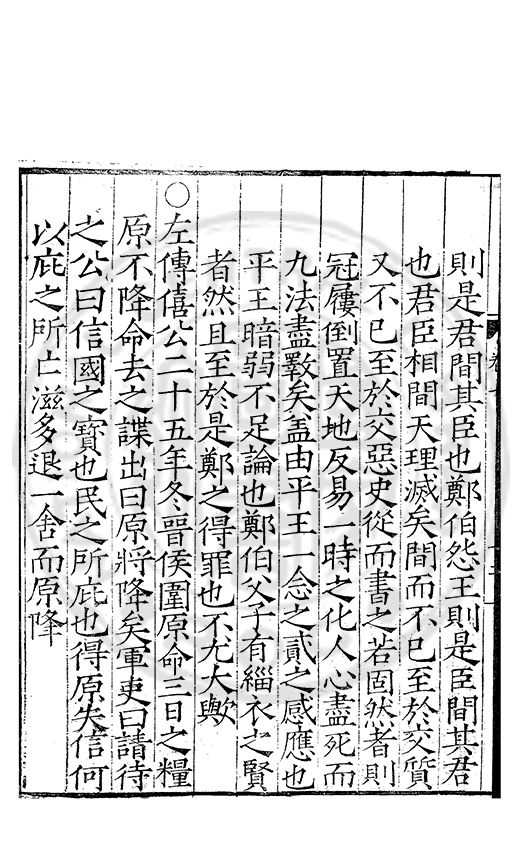 則是君間其臣也鄭伯怨王則是臣間其君
也君臣相間天理滅矣間而不已至於交質
又不已至於交惡史從而書之若固然者則
冠屨倒置天地反易一時之化人心盡死而
九法盡斁矣盖由平王一念之貳之感應也
平王暗弱不足論也鄭伯父子有緇衣之賢
者然且至於是鄭之得罪也不尤大歟
○左傳僖公二十五年冬晉侯圍原命三日之糧
原不降命去之諜出曰原將降矣軍吏曰請待
之公曰信國之寶也民之所庇也得原失信何
以庇之所亡滋多退一舍而原降